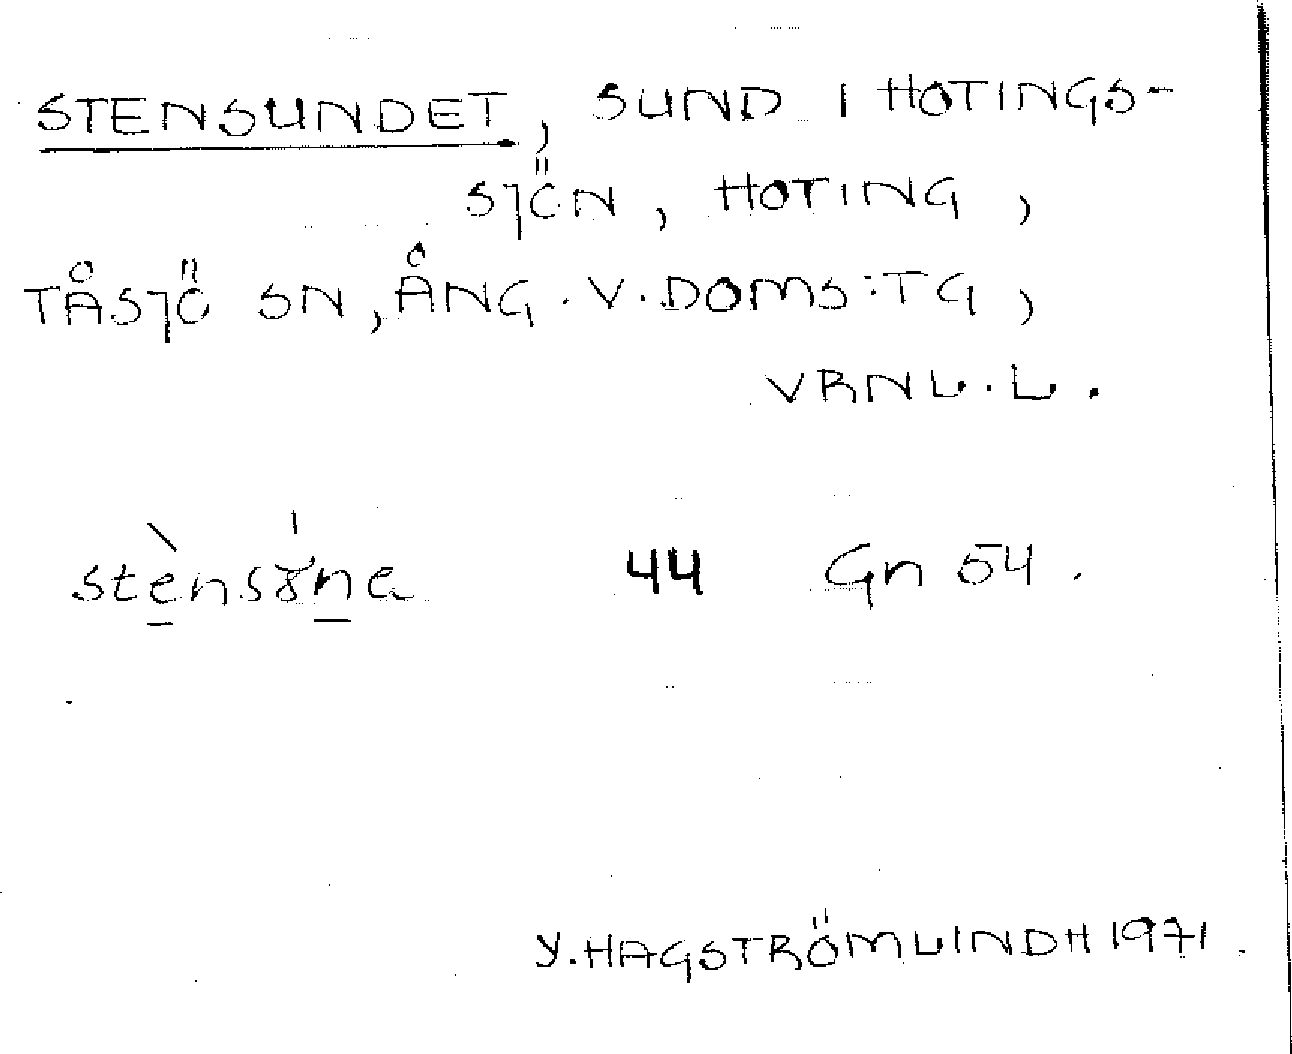 STENSUNDET, SUND I HOTINGS-
SJÖN, HOTING,
TÅSJÖ SN, ÅNG. V. DOMS:TG,
VRNL. L.
44 Gn 54.
Y. HAGSTRÖMLINDH 1971.